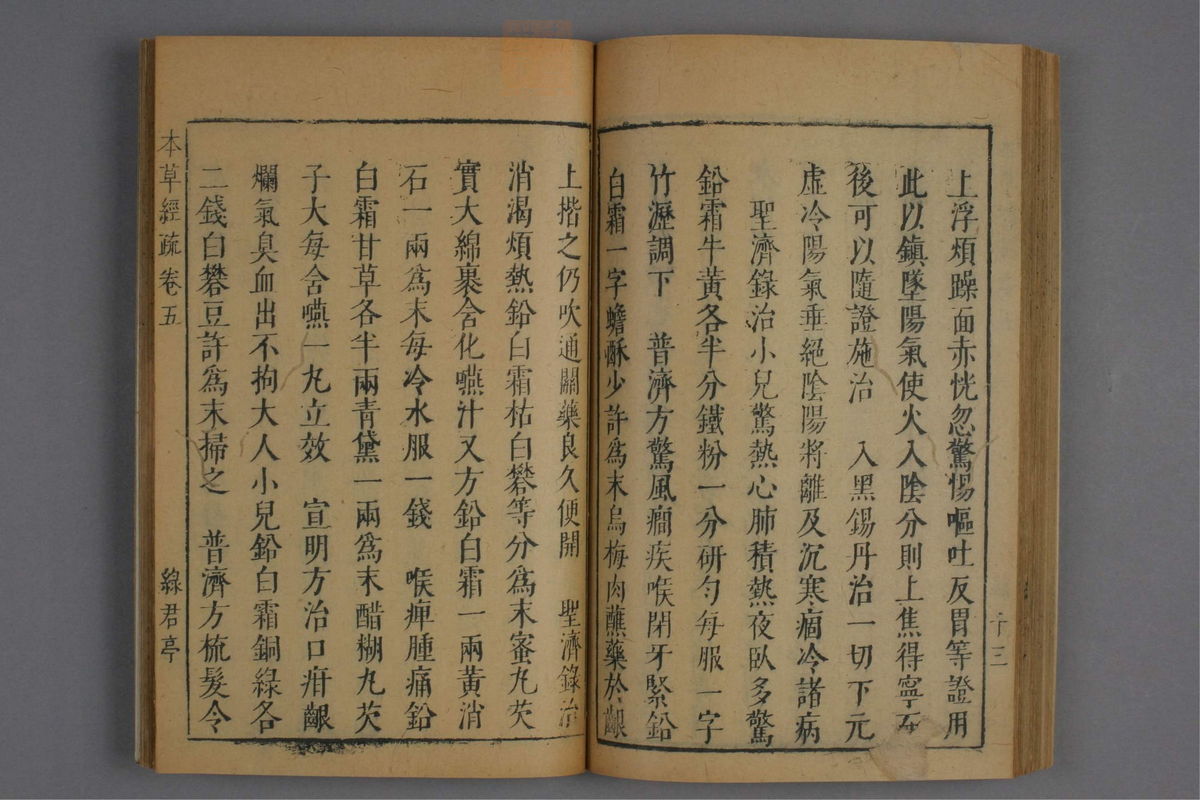 上浮煩躁面赤恍忽驚惕嘔吐反胃等證用
此以鎮墜陽氣使火入陰分則上焦得寧而
後可以隨證施治　入黑錫丹治一切下元
虛冷陽氣垂絕陰陽將離及沉寒痼冷諸病
聖濟錄治小兒驚熱心肺積熱夜臥多驚
鉛霜牛黃各半分鐵粉一分研勻每服一字
竹瀝調下　普濟方驚風癇疾喉閉牙緊鉛
白霜一字蟾酥少許爲末烏梅肉蘸藥於齦
十三
上揩之仍吹通關藥良久便開　聖濟錄治
消渴煩熱鉛白霜枯白礬等分爲末蜜丸芡
實大綿裹含化嚥汁又方鉛白霜一兩黃消
石一兩爲末每冷水服一錢　喉痺腫痛鉛
白霜甘草各半兩青黛一兩爲末醋糊丸芡
子大每含嚥一丸立效　宣明方治口疳齦
爛氣臭血出不拘大人小兒鉛白霜銅綠各
二錢白礬豆許爲末掃之　普濟方梳髮令
本草經疏 卷五 綠君亭